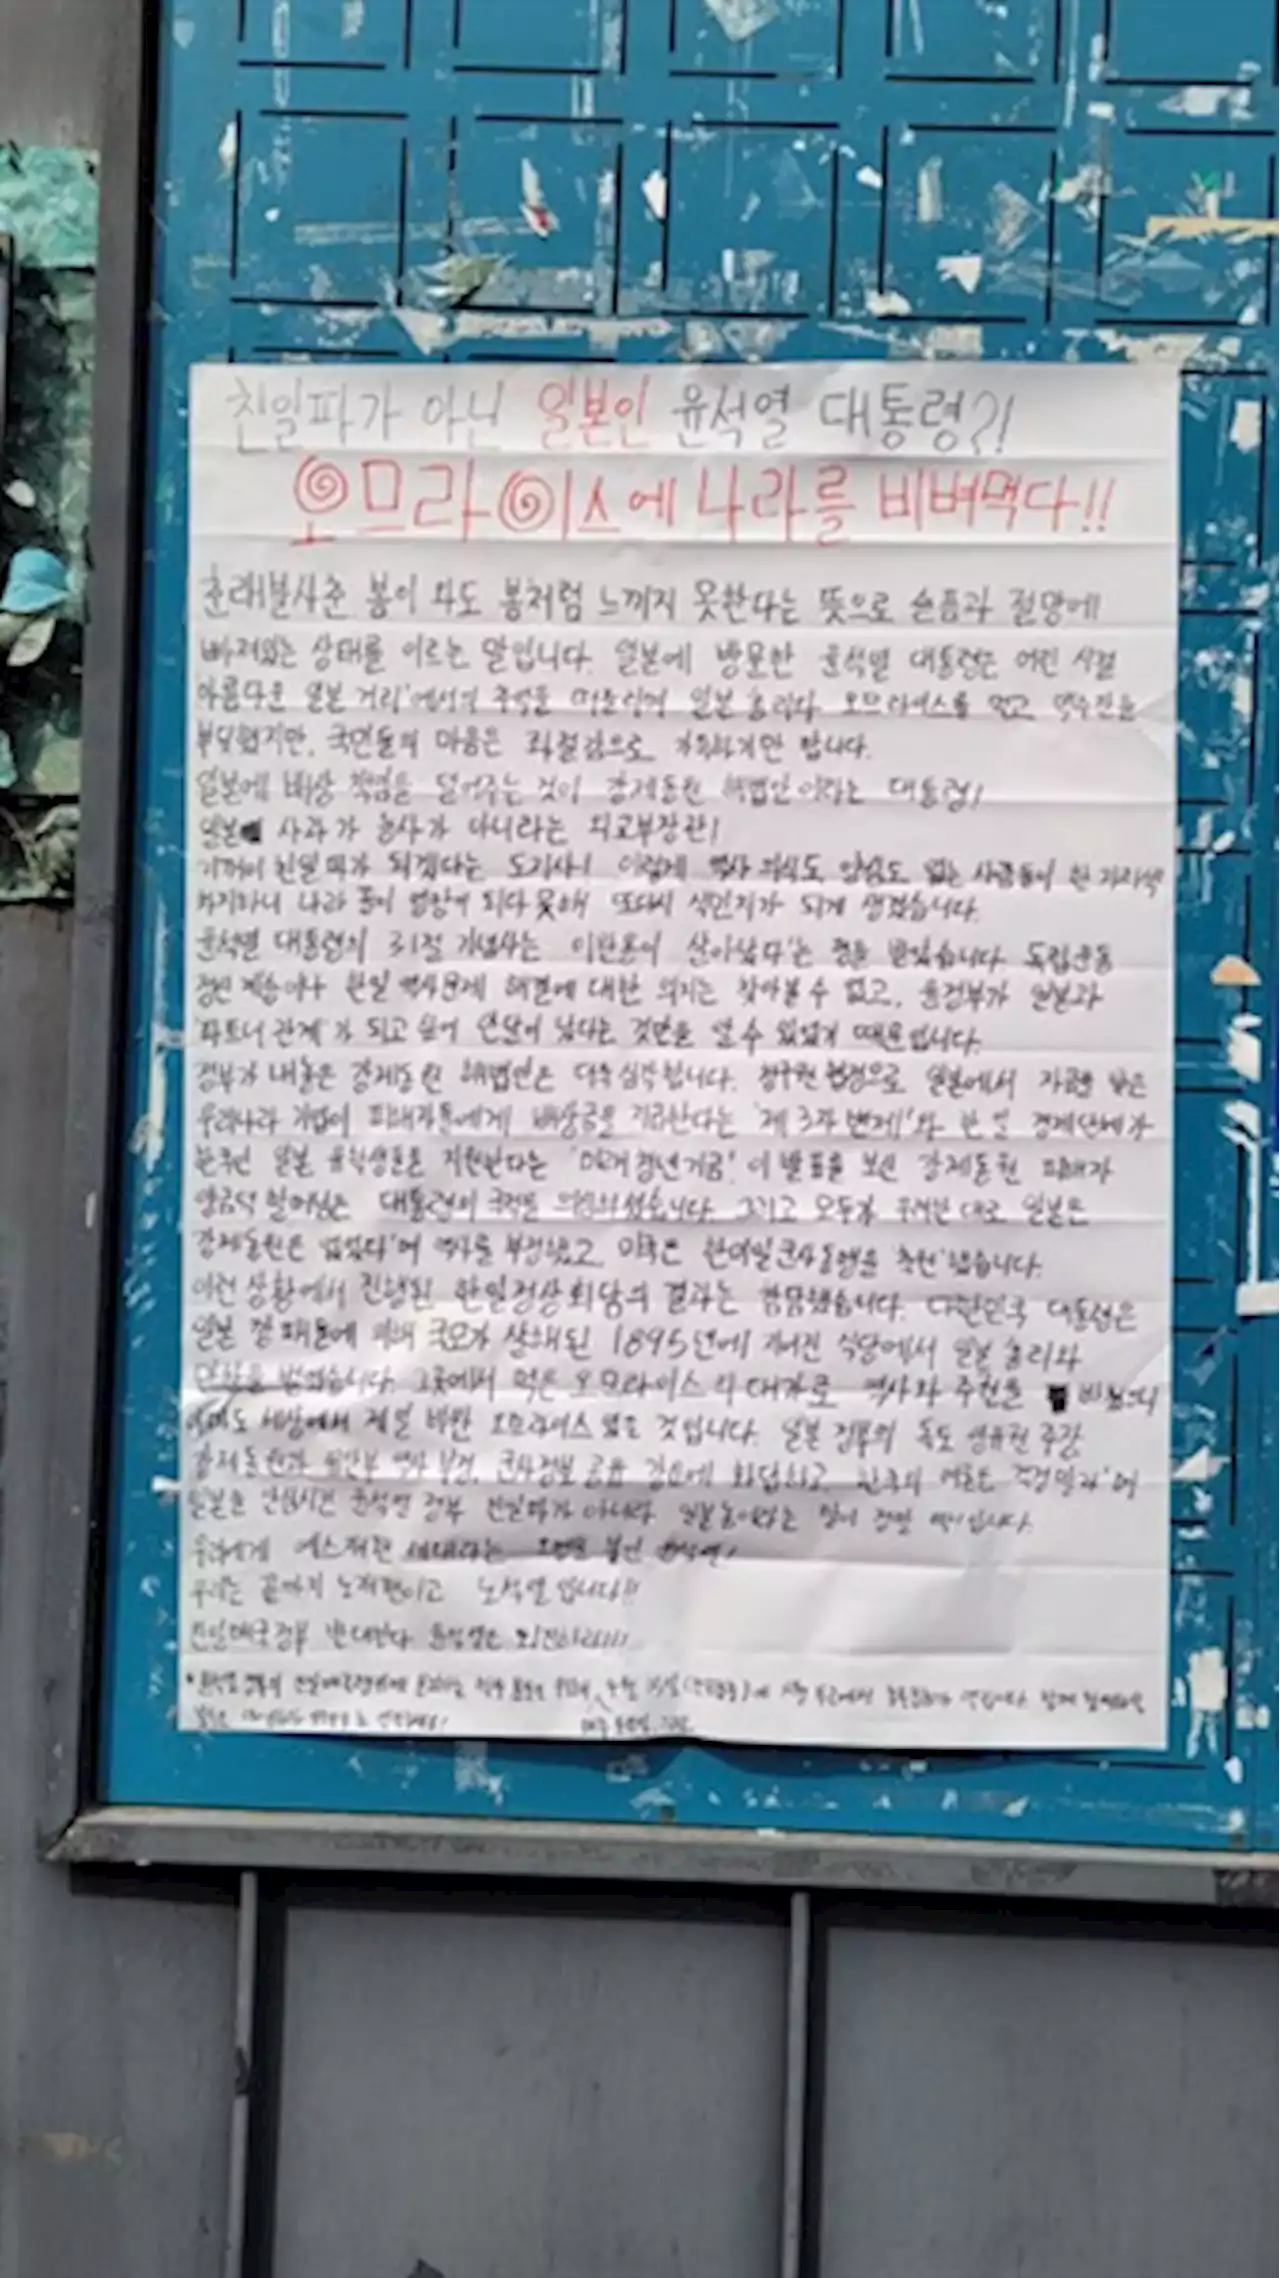 친일파가 아닌 일본인 윤석열 대통령?!
오므라이스에 나라를 비벼먹다!!
춘래불사춘 봄이 와도 봄처럼 느끼지 못한다는 뜻으로 슬픔과 절망에
빠져있는 상태를 이르는 말입니다. 일본에 방문한 윤석열 대통령은 어린 시절
아름다운 일본 거리'에서의 추억을 떠올리며 일본 총리와 오므라이스를 먹고 악수만을
부딪혔지만, 국민들의 마음은 좌절감으로 가득하기만 합니다.
일본에 배상 책임을 덜어주는 것이 강제동원 해법안이라는 대통령!
일본 사과가 아니라는 외교부장관!
기꺼이 친일파가 되겠다는 도지사! 이렇게 역사 의식도 양심도 없는 사람들이 한 자리씩
차지하니 나라 꼴이 엉망이 되다 못해 또다시 식민지가 되게 생겼습니다.
윤석열 대통령의 3.1절 기념사는 이완용이 살아났다'는 평을 받았습니다. 독립운동
정신 계승이나 한일 역사문제 해결에 대한 의지는 찾아볼 수 없고, 윤정부가 일본과
'파트너 관계'가 되고 싶어 안달이 났다는 것만을 알 수 있었기 때문입니다.
정부가 내놓은 강제동원 해법안은 더욱 심각합니다. 청구권 협정으로 일본에서 자금을 받은
우리나라 기업이 피해자들에게 배상금을 지급한다는 '제 3자 변제'와 한일 경제단체가
한국인 일본 유학생들을 지원한다는 '미래청년기금'. 이 발표를 보신 강제동원 피해자
양금덕 할머님은 대통령의 국적을 의심하셨습니다. 그리고 모두가 우려한 대로 일본은
강제동원은 없었다'며 역사를 부정했고, 미국은 한미일군사동맹을 축했습니다.
이런 상황에서 진행된 한일정상회담의 결과는 참담했습니다. 대한민국 대통령은
일본 깡패들에 의해 국모가 살해된 1895년에 지어진 식당에서 일본 총리와
만찬을 벌였습니다. 그곳에서 먹은 오므라이스의 대가로 역사와 주권을 바쳤으니
아마도 세상에서 제일 비싼 오므라이스였을 것입니다. 일본 정부의 독도 영유권 주장,
강제동원과 위안부 역사 부정, 군사정보 공유 강요에 화답하고, 한국의 여론은 걱정말라'며
일본을 안심시킨 윤석열 정부 친일파가 아니라 일본 정말 입니다.
우리에게 세대라는 오명을 붙인 윤석열!
우리는 끝까지 노재팬이고 노석열입니다!!
친일매국정부 반대한다 윤석열은 퇴진하라!!!!